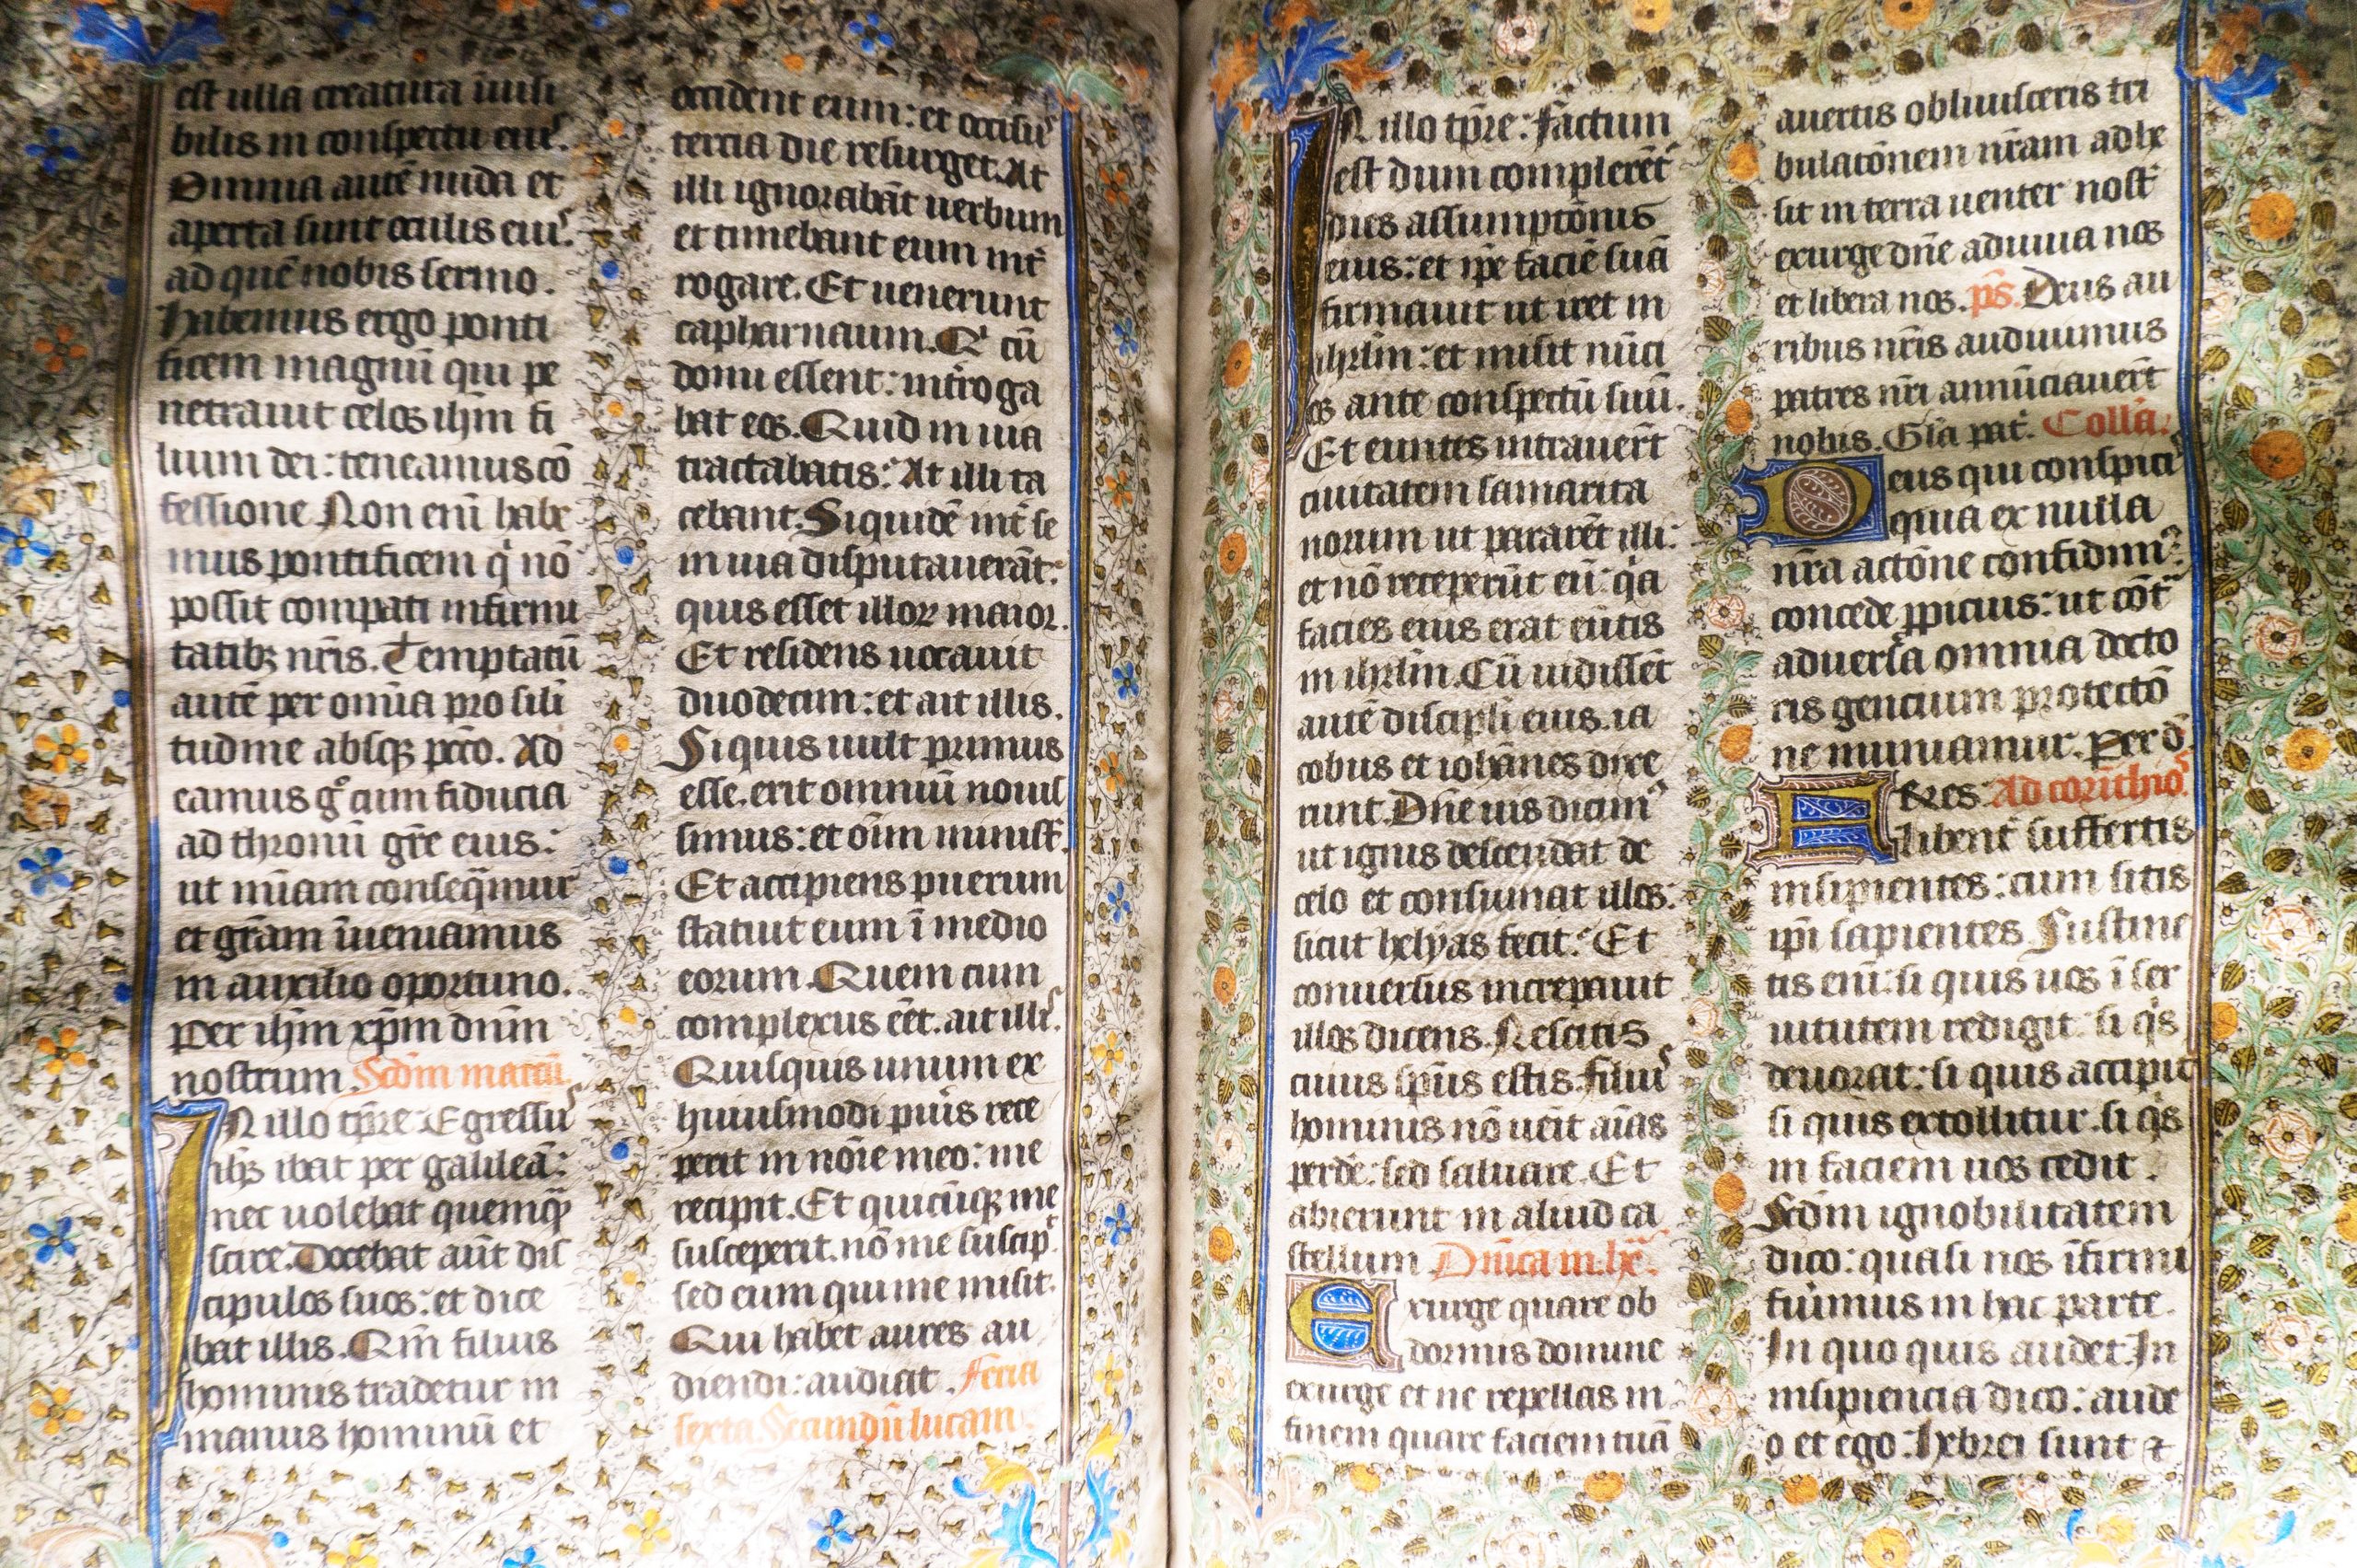 est ulla creatura īuisi
bilis in conspectu eiꝰ.
Omnia autē nuda et
aperta sunt oculis eiꝰ.
ad quē nobis sermo.
Habemus ergo ponti
ficem magnū qui pe
netrauit celos ihm̄ fi
lium dei: teneamus cō
fessione Non enī habe
mus pontificem q̇ nō
possit compati infirmi
tatibꝫ nr̄is. Temptatū
autē per omīa pro sili
tudine absqꝫ pc̄to. Ad
eamus gͦ cum fiducia
ad thronū gr̄e eius:
ut mīam conseq̄mur
et gr̄am īueniamus
in auxilio oportuno.
Per ihm̄ xp̄m dnm̄
nostrum. Scdm̄ marcū.
IN illo tp̄re: Egressuꝰ
ihs̄ ibat per galileā:
nec uolebat quemqꝫ
scire. Docebat aūt dis
cipulos suos: et dice
bat illis. Qm̄ filius
hominis tradetur in
manus hominū et
occident eum: et occisuꝰ
tercia die resurget. At
illi ignorabāt uerbum
et timebant eum int̄
rogare. Et uenerunt
capharnaum. Q' cū
domi essent: int̄roga
bat eos. Quid in uia
tractabatis: At illi ta
cebant. Siquidē int̄ se
in uia disputauerāt:
quis esset illoꝝ maior.
Et residens uocauit
duodecim: et ait illis.
Si quis uult primus
esse. erit omniū nouis
simus: et oīm minist̄.
Et accipiens puerum
statuit eum ī medio
eorum. Quem cum
complexus eēt. ait illis.
Quisquis unum ex
huiusmodi puīs rece
perit in noīe meo: me
recipit. Et quicūqꝫ me
susceperit. nō me suscip̄.
sed eum qui me misit.
Qui habet aures au
diendi: audiat. Feria
sexta. Secundū lucam.
IN illo tp̄re: Factum
est dum complerēt̄
dies assumptōnis
eius: et ip̄e faciē suā
firmauit ut iret in
ihrlm̄: et misit nūci
os ante conspectū suū.
Et euntes intrauer̄t
ciuitatem samarita
norum ut pararēt illi:
et nō receperūt eū: q̇a
facies eius erat eūtis
in ihrlm̄. Cū uidissēt
autē discipli eius. ia
cobus et iohānes dixe
runt. Dn̄e uis dicimꝰ
ut ignis descendat de
celo et consumat illos:
sicut helyas fecit: Et
conuersus increpauit
illos dicens. Nescitis
cuius sp̄us estis. filiuꝰ
hominis nō ueīt aīas
perde: sed saluare. Et
abierunt in aliud ca
stellum. Dn̄ica in.lx̄.
Exurge quare ob
dormis domine
exurge et ne repellas in
finem quare faciem tuā
auertis obliuisceris tri
bulatōnem nr̄am adhe
sit in terra uenter nost̄
exurge dn̄e adiuua nos
et libera nos. p̄s. Deus au
ribus nr̄is audiuimus
patres nr̄i annūciauer̄t
nobis. Gl̄a pat̄. Coll̄a.
Deus qui conspici
quia ex nulla
nr̄a actōne confidimꝰ:
concede ꝓpicius: ut cōt̄
aduersa omnia docto
ris gencium protectō
ne muniamur. Per d̄
Fr̄es Ad corīthioꝰ.
libent̄ suffertis
insipientes: cum sitis
ip̄i sapientes. Sustine
tis enī: si quis uos ī ser
uitutem redigit: si q̇s
deuorat: si quis accipit
si quis extollitur. si q̇s
in faciem uos cedit.
Scdm̄ ignobilitatem
dico: quasi nos īfirmi
fuimus in hac parte.
In quo quis audet. In
insipiencia dico: aude
o et ego. Hebrei sunt ⁊